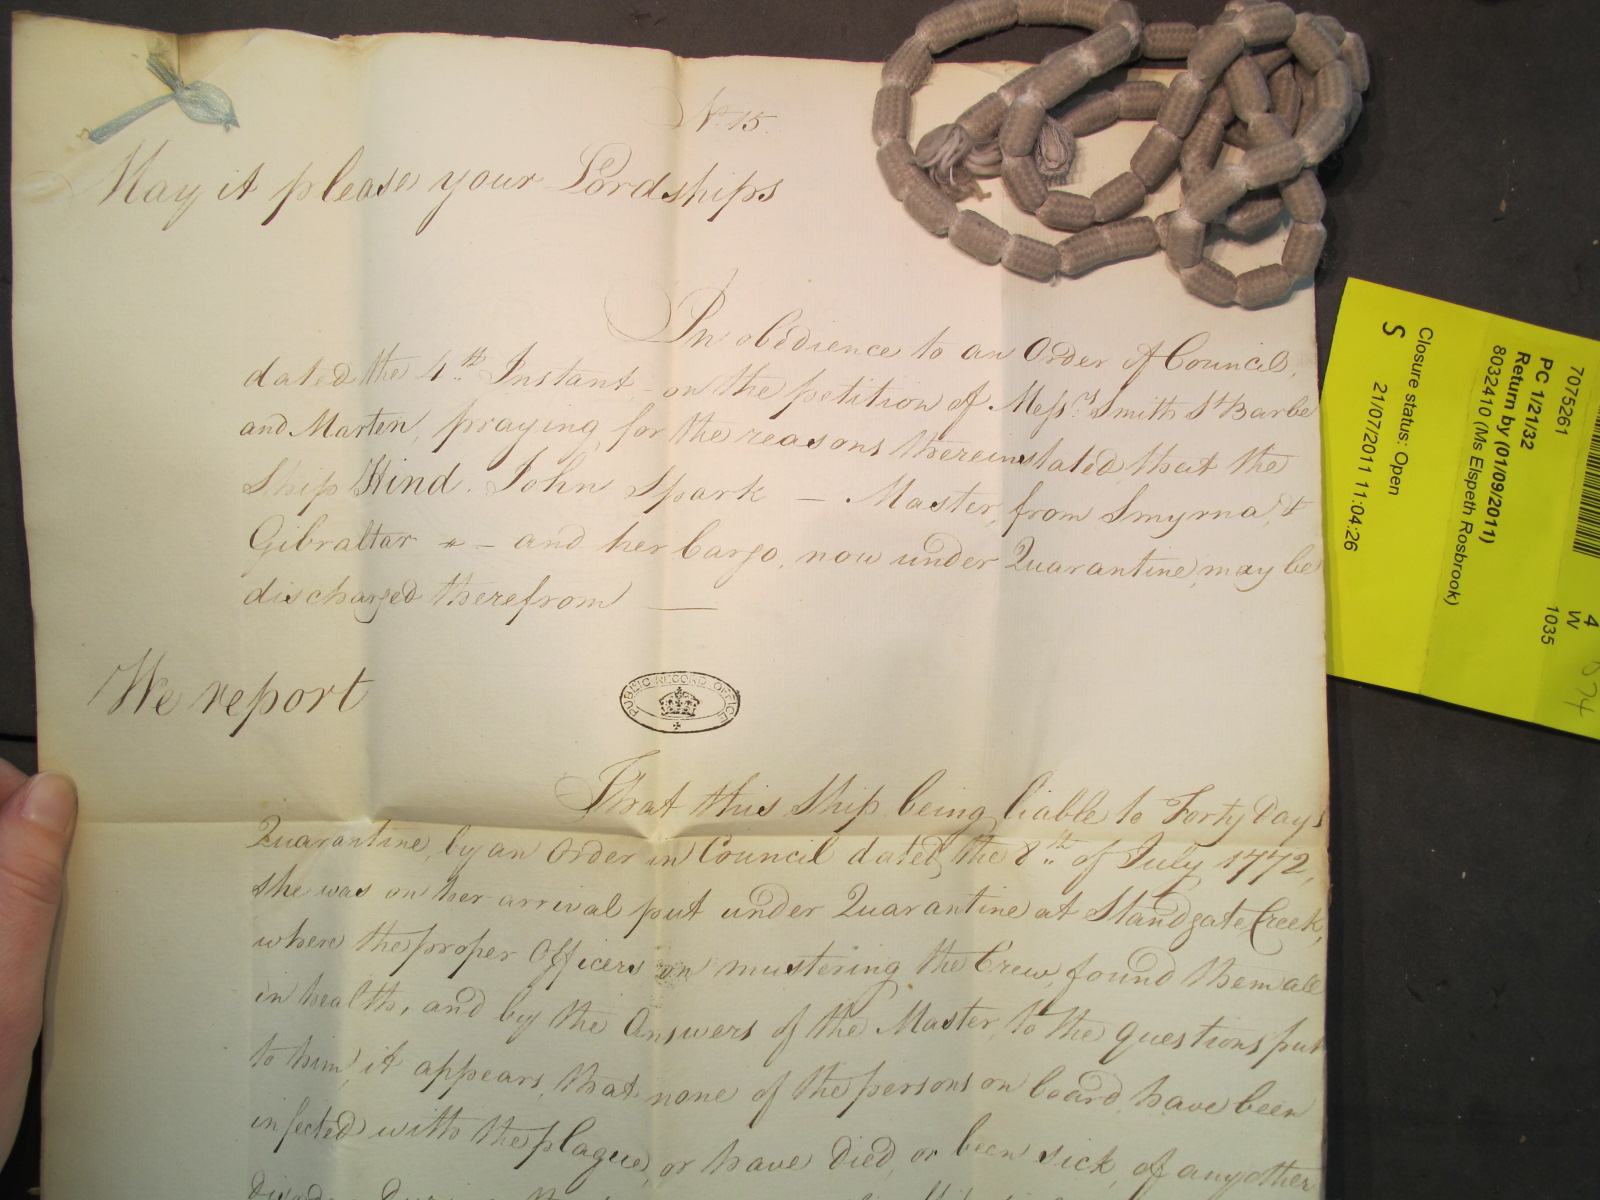 No. 15.
May it please your Lordships
In obedience to an Order of Council,
dated the 4th. Instant, on the petition of Messrs. Smith St. Barbe
and Marten, praying, for the reasons therein stated, that the
Ship Hind. John Spark — Master, from Smyrna, &
Gibraltar — and her Cargo, now under Quarantine, may be
discharged therefrom —
We report
PUBLIC RECORD OFFICE
That this Ship being liable to Forty Days
Quarantine, by an Order in Council dated the 8th. of July 1772,
she was on her arrival put under Quarantine at Standgate Creek,
where the proper Officers on mustering the Crew, found them all
in health, and by the Answers of the Master, to the questions put
to him, it appears, that none of the persons on board, have been
infected with the plague, or have died, or been sick, of any other
7075261
PC 1/21/32
Return by (01/09/2011)
8032410 (Ms Elspeth Rosbrook)
Closure status: Open
S
21/07/2011 11:04:26
4
W
1035